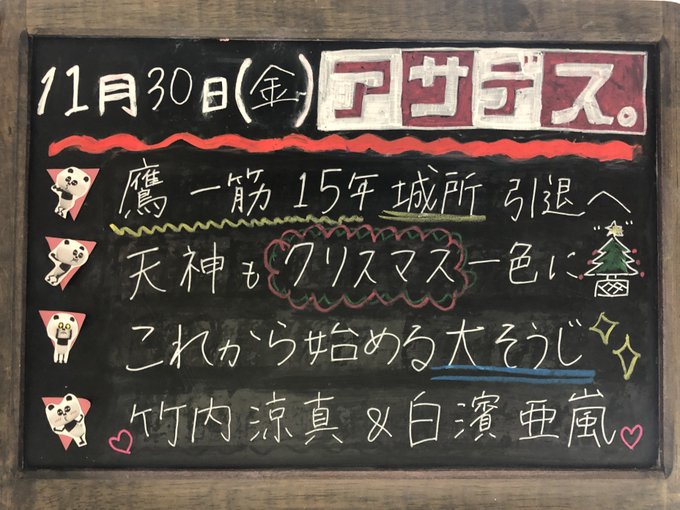 11月30日(金)アサデス。
鷹一筋15年 城所 引退へ
天神もクリスマス一色に
これから始める大そうじ
竹内涼真&白濱亜嵐